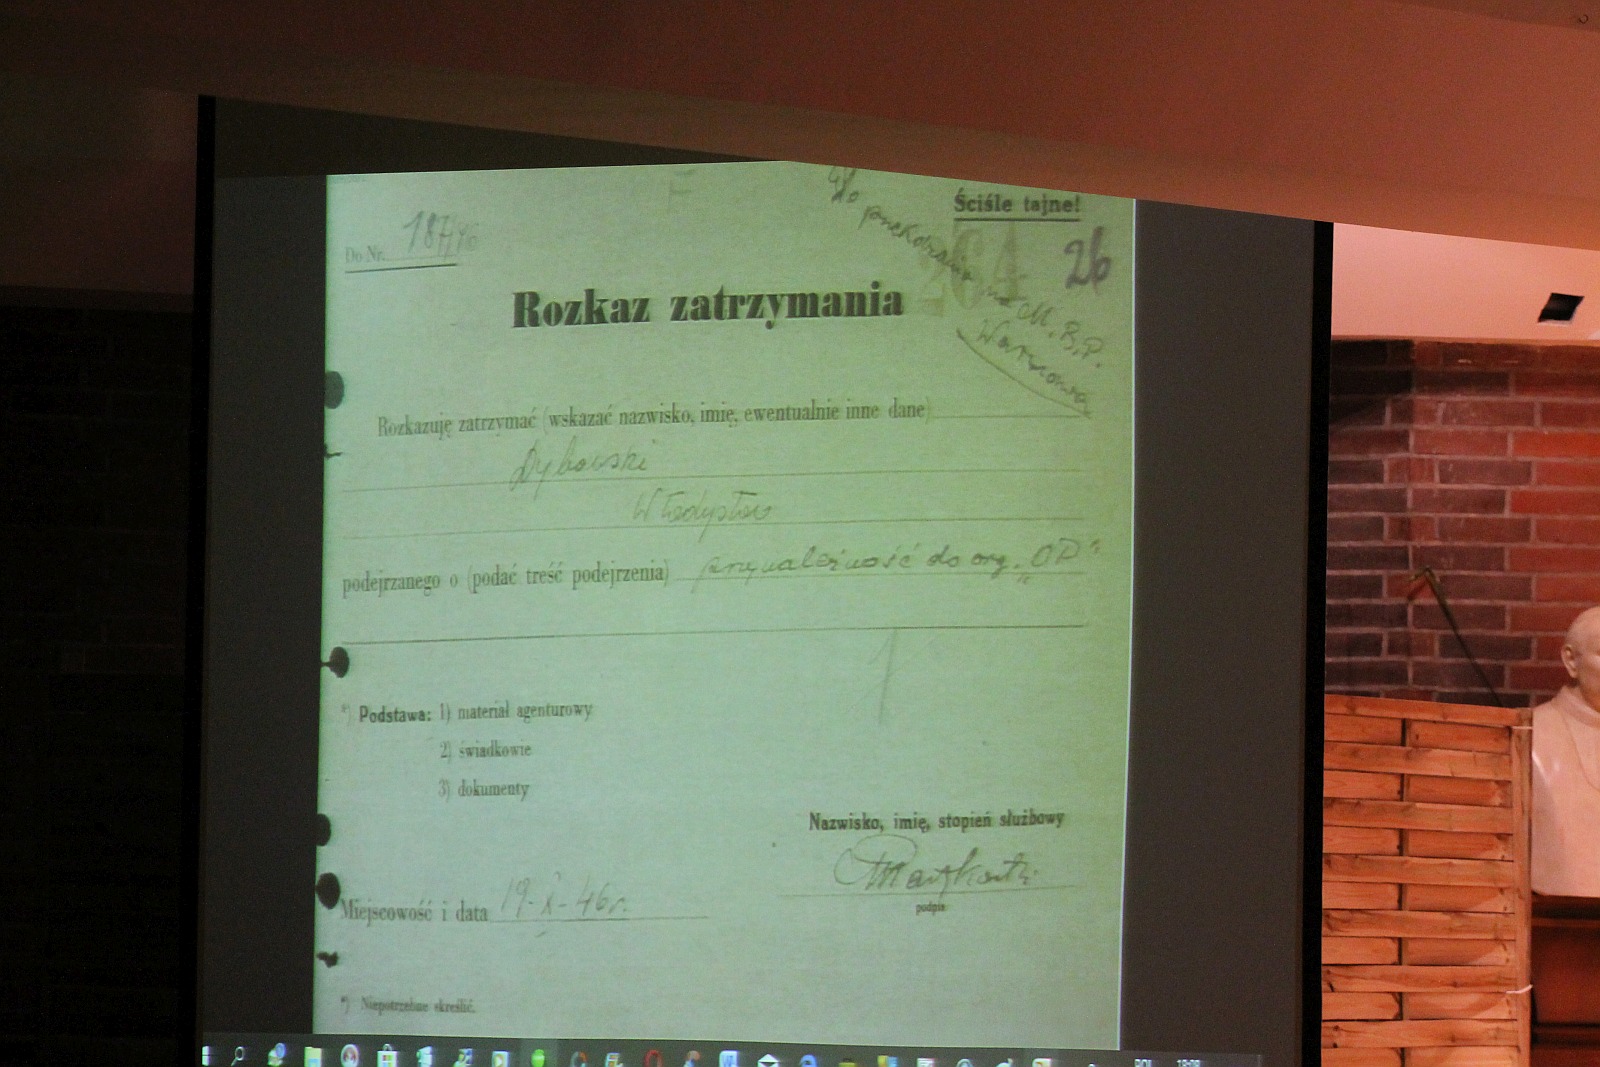 Ściśle tajne!
Do Nr. 187/46
26
264
do przekazania na M.B.P.
Warszawa
Rozkaz zatrzymania
Rozkazuję zatrzymać (wskazać nazwisko, imię, ewentualnie inne dane)
Dybowski
Władysław
podejrzanego o (podać treść podejrzenia) przynależność do org. „OP"
*) Podstawa: 1) materiał agenturowy
2) świadkowie
3) dokumenty
Nazwisko, imię, stopień służbowy
podpis
Miejscowość i data 19-X-46r.
*) Niepotrzebne skreślić.
POL